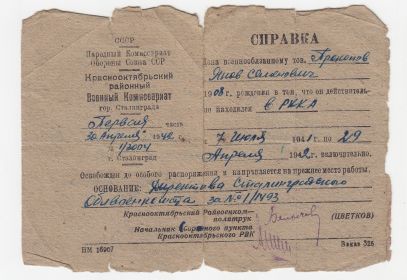 СССР
Народный Комиссариат
Обороны Союза ССР
Краснооктябрьский
районный
Военный Комиссариат
гор. Сталинграда
Первая часть
30 Апреля 1942 г.
г. Сталинград
СПРАВКА
Дана военнообязанному тов. Прокопов
Яков Семенович
1908 г. рождения в том, что он действитель-
но находился в РККА
с 7 Июля 1941 г. по 29
Апреля 1942 г. включительно.
Освобожден до особого распоряжения и направляется на прежнее место работы.
ОСНОВАНИЕ: Директива Сталинградского
Облвоенкомата за №
Краснооктябрьский Райвоенком—
политрук (ЦВЕТКОВ)
Начальник сборного пункта
Краснооктябрьского РВК
НМ 16907
Заказ 326